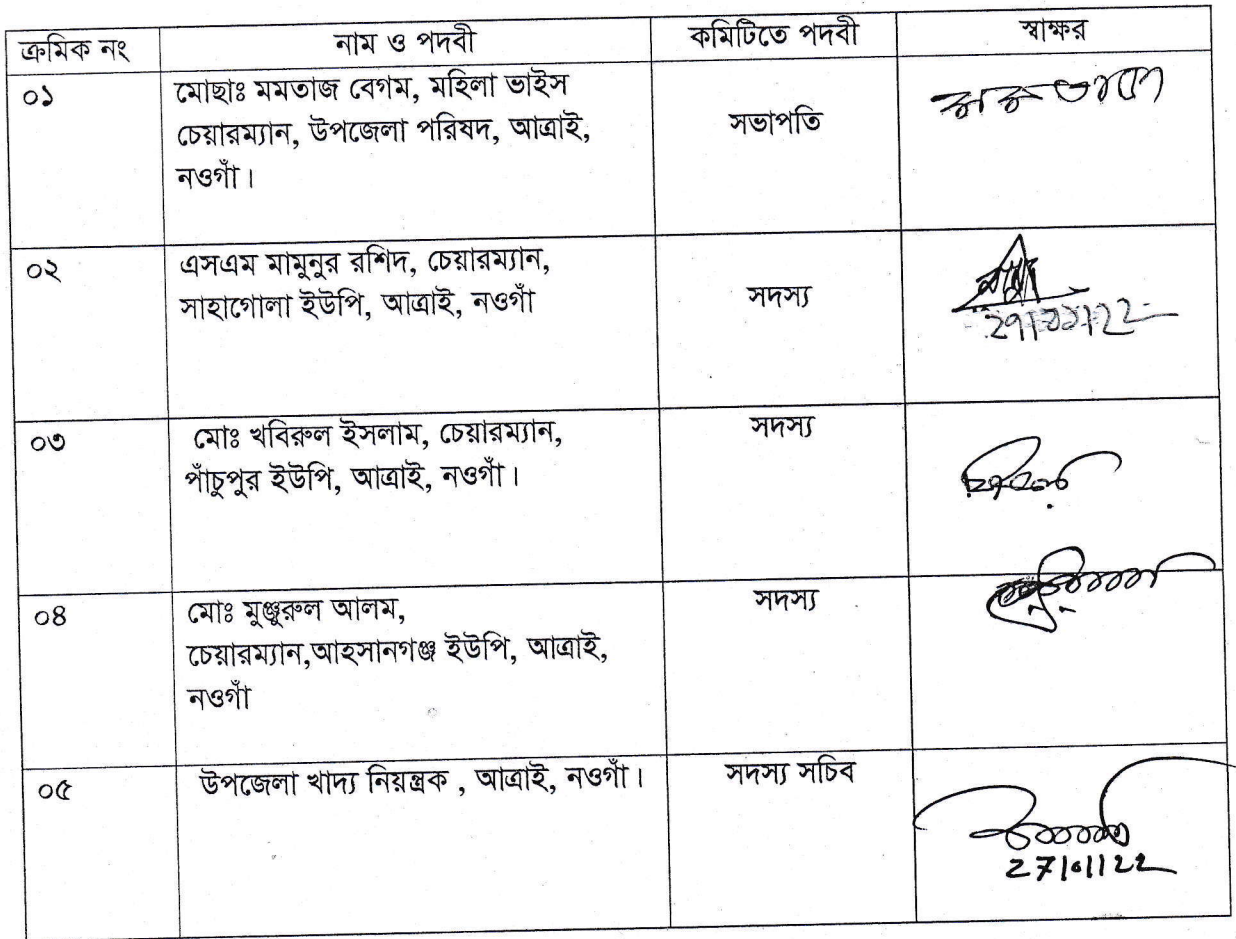 ক্রমিক নং নাম ও পদবী কমিটিতে পদবী স্বাক্ষর
০১ মোছাঃ মমতাজ বেগম, মহিলা ভাইস
চেয়ারম্যান, উপজেলা পরিষদ, আত্রাই,
নওগাঁ।
সভাপতি
০২ এসএম মামুনুর রশিদ, চেয়ারম্যান,
সাহাগোলা ইউপি, আত্রাই, নওগাঁ
সদস্য
০৩ মোঃ খবিরুল ইসলাম, চেয়ারম্যান, সদস্য
পাঁচুপুর ইউপি, আত্রাই, নওগাঁ।
০৪ মোঃ মুঞ্জুরুল আলম, সদস্য
চেয়ারম্যান,আহসানগঞ্জ ইউপি, আত্রাই,
নওগাঁ
০৫ উপজেলা খাদ্য নিয়ন্ত্রক , আত্রাই, নওগাঁ। সদস্য সচিব
27/01/22